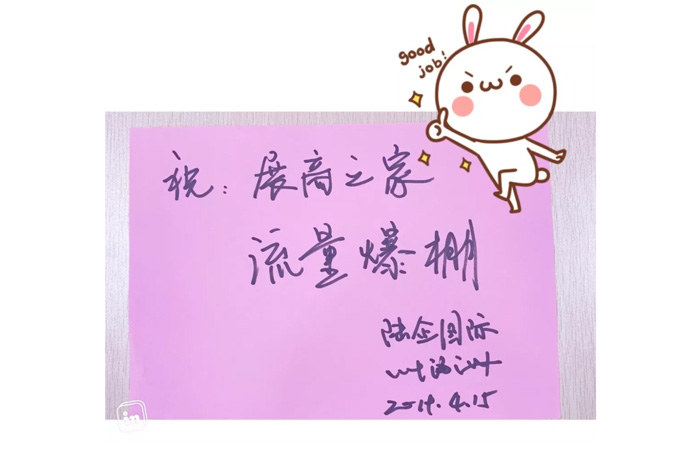 good
job!
祝：展商之家
流量爆棚
陆企国际
2019.4.15
in